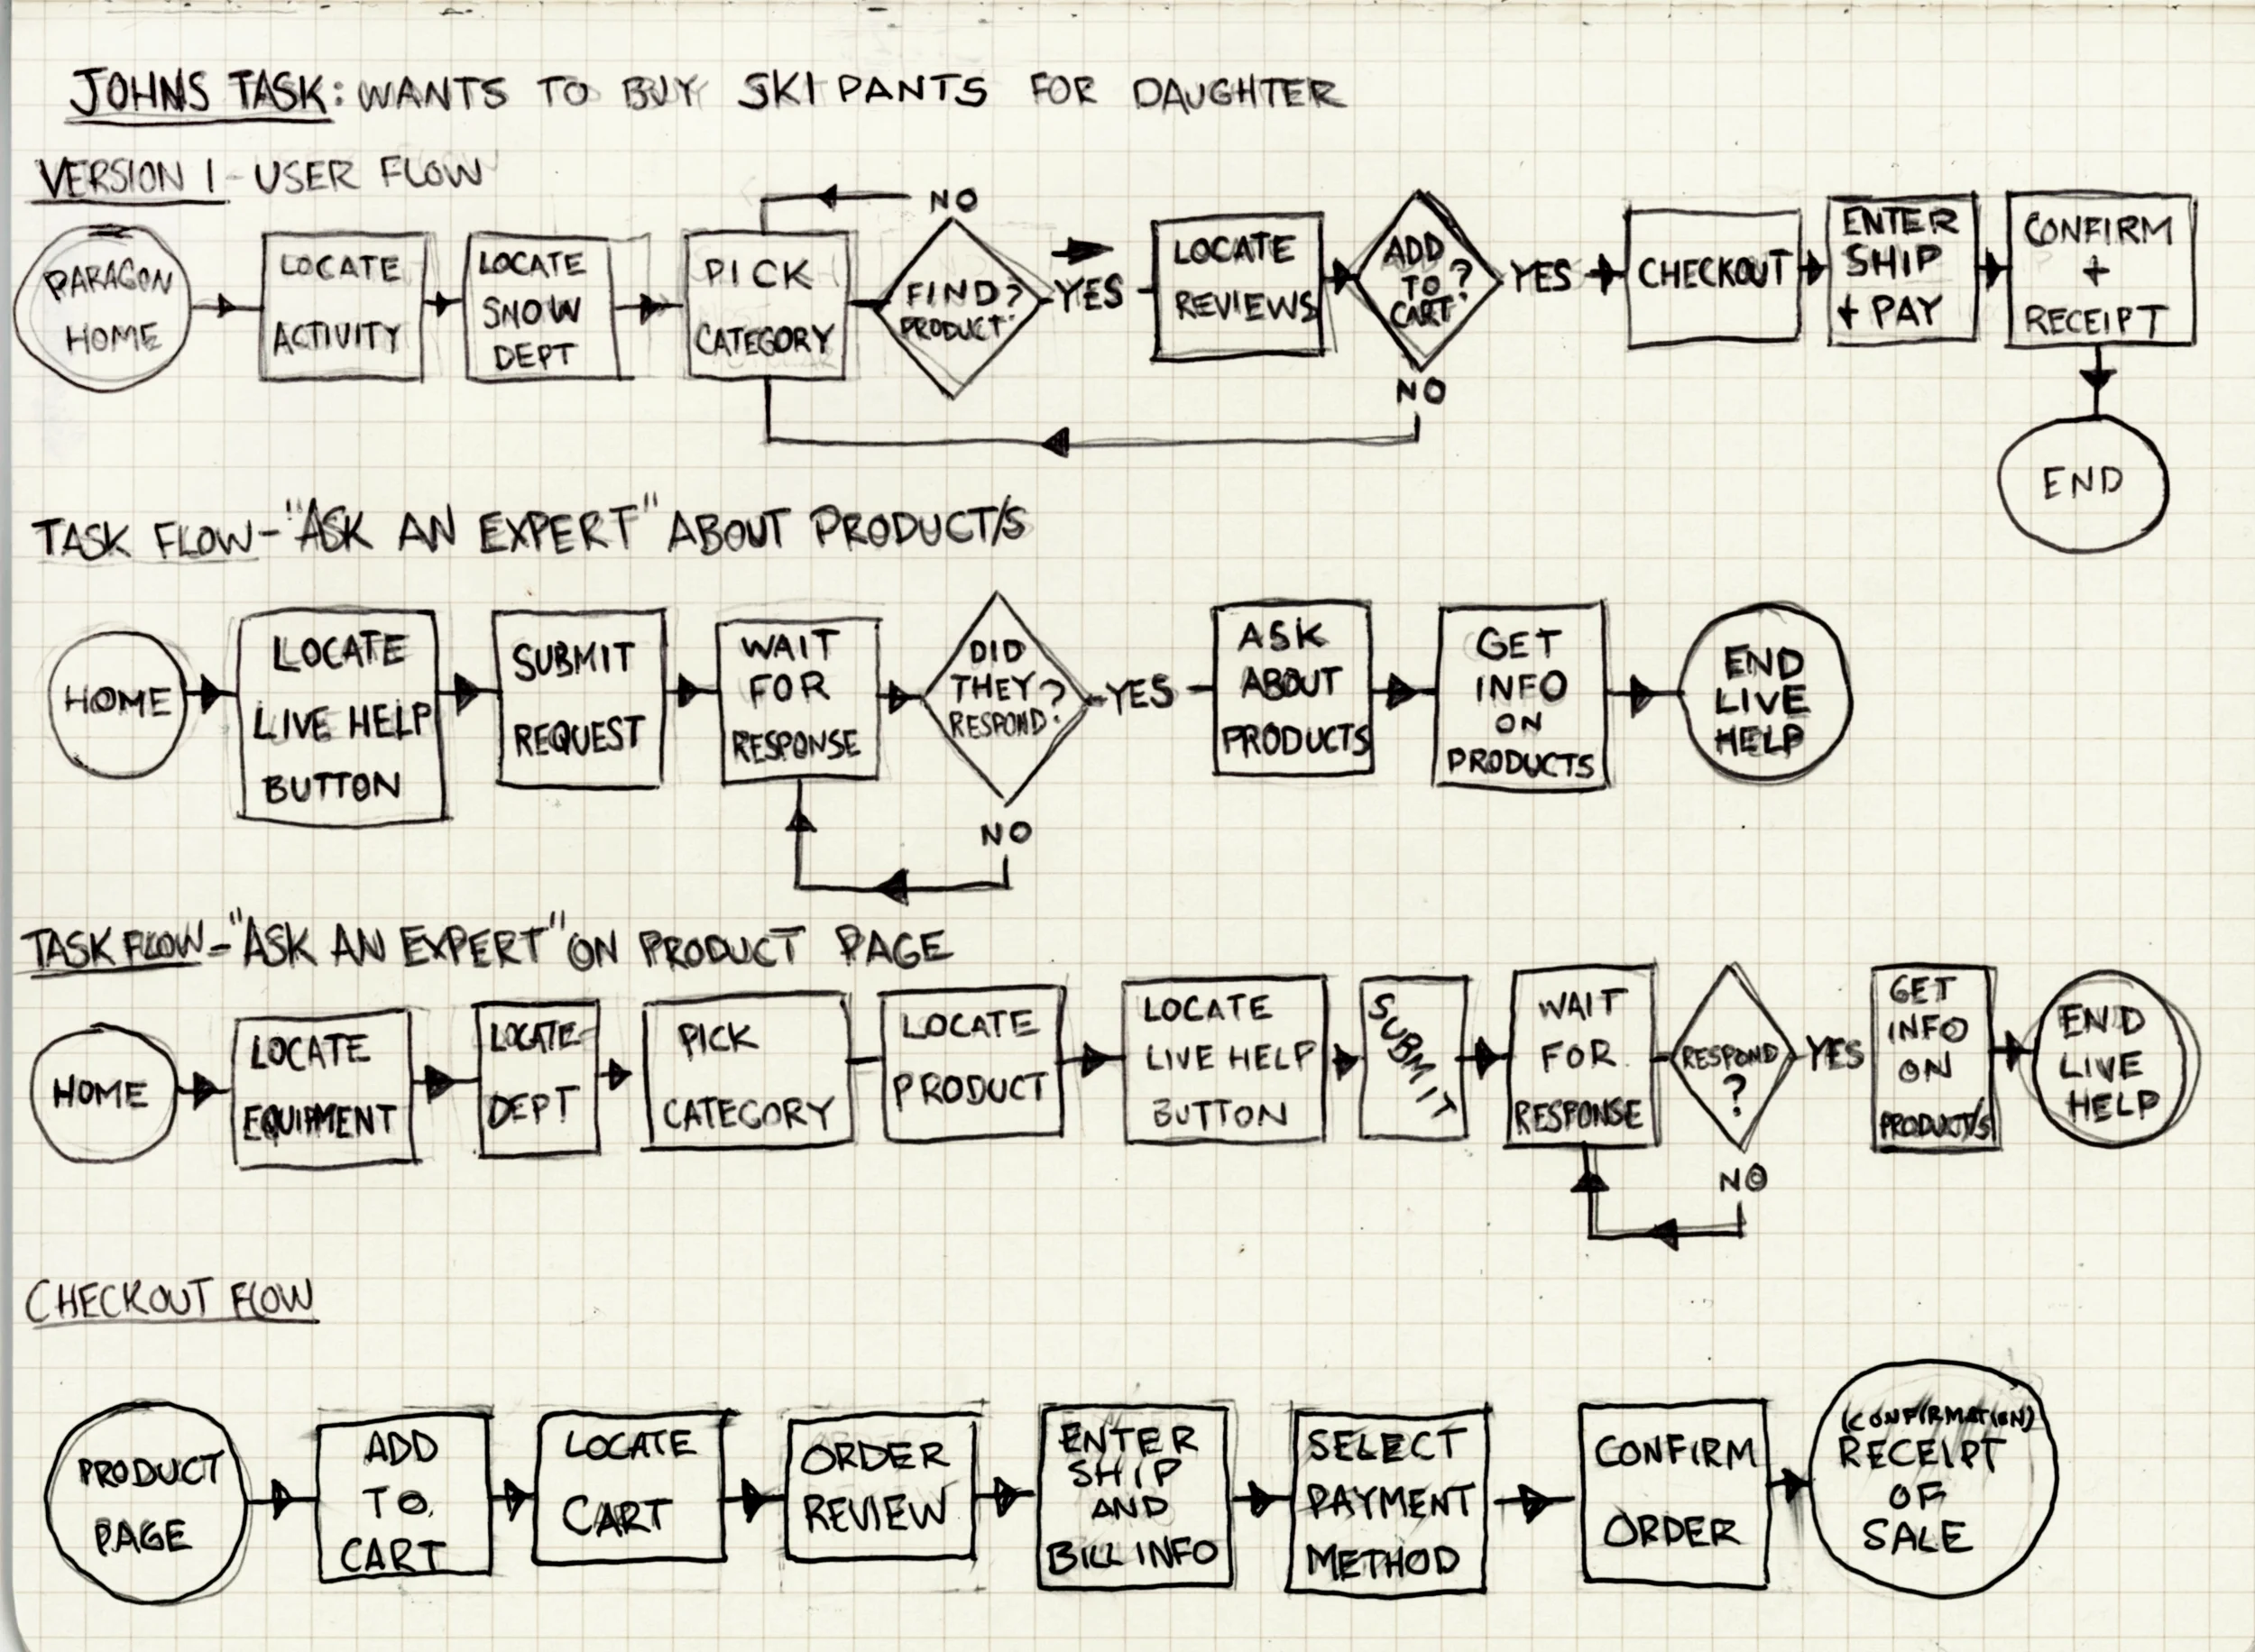 JOHNS TASK: WANTS TO BUY SKI PANTS FOR DAUGHTER
VERSION 1 - USER FLOW
PARAGON
HOME
LOCATE
ACTIVITY
LOCATE
SNOW
DEPT
PICK
CATEGORY
NO
FIND?
PRODUCT
YES
LOCATE
REVIEWS
ADD
TO?
CART
YES
NO
CHECKOUT
ENTER
SHIP
+ PAY
CONFIRM
+
RECEIPT
END
TASK FLOW - "ASK AN EXPERT" ABOUT PRODUCT/S
HOME
LOCATE
LIVE HELP
BUTTON
SUBMIT
REQUEST
WAIT
FOR
RESPONSE
DID
THEY?
RESPOND
YES
NO
ASK
ABOUT
PRODUCTS
GET
INFO
ON
PRODUCTS
END
LIVE
HELP
TASK FLOW - "ASK AN EXPERT" ON PRODUCT PAGE
HOME
LOCATE
EQUIPMENT
LOCATE
DEPT
PICK
CATEGORY
LOCATE
PRODUCT
LOCATE
LIVE HELP
BUTTON
SUBMIT
WAIT
FOR
RESPONSE
RESPOND
?
YES
NO
GET
INFO
ON
PRODUCT/S
END
LIVE
HELP
CHECKOUT FLOW
PRODUCT
PAGE
ADD
TO
CART
LOCATE
CART
ORDER
REVIEW
ENTER
SHIP
AND
BILL INFO
SELECT
PAYMENT
METHOD
CONFIRM
ORDER
(CONFIRMATION)
RECEIPT
OF
SALE